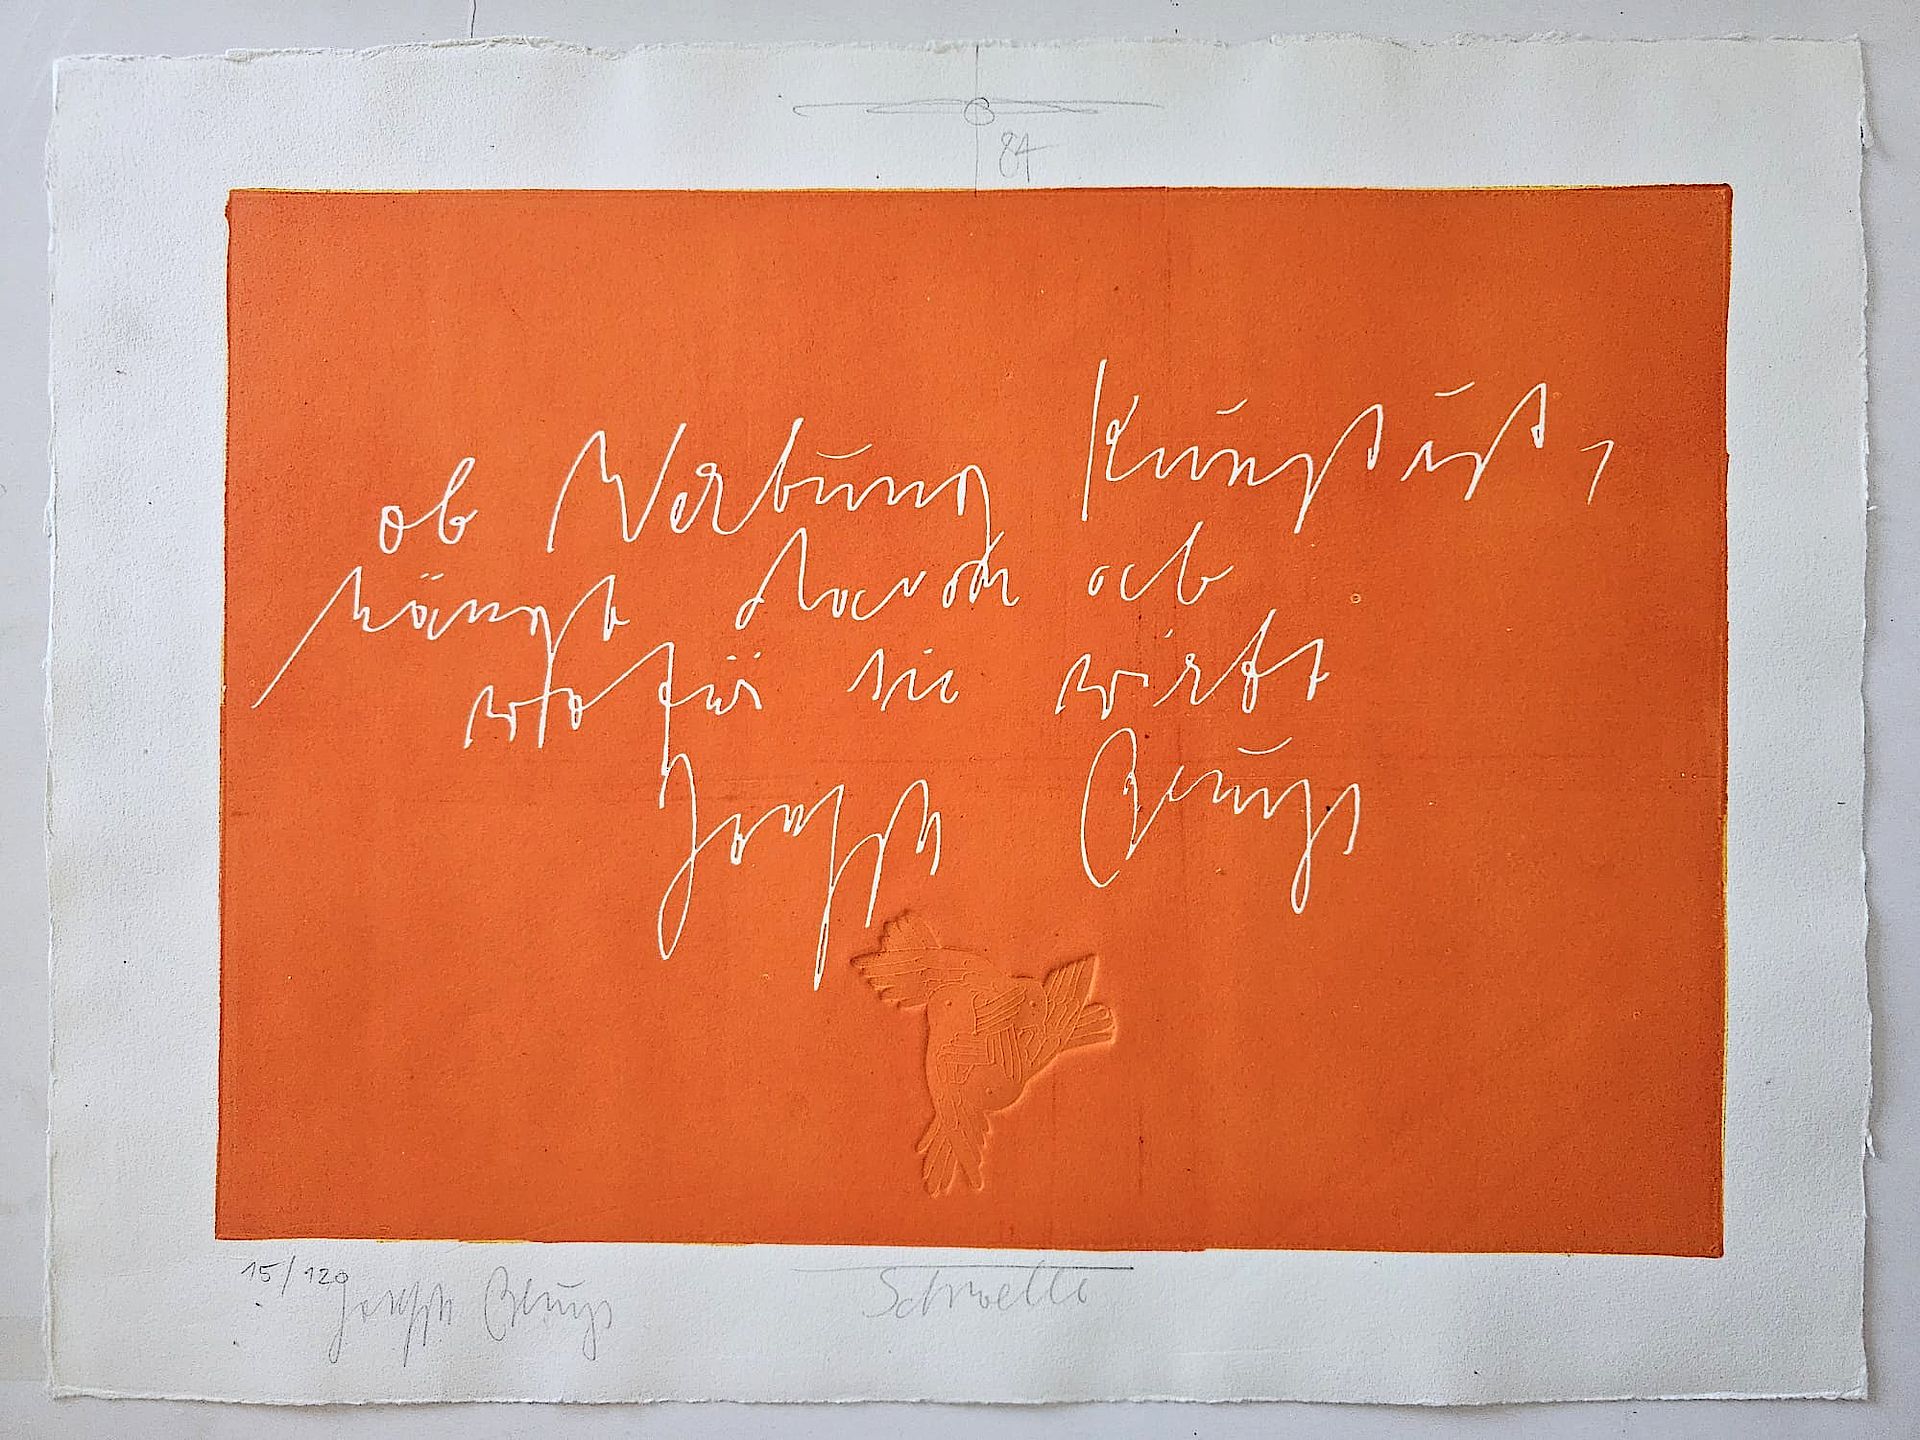 84
ob Werbung Kunst ist,
hängt davon ab
wofür sie wirbt
Joseph Beuys
15/120 Joseph Beuys
Schwelle